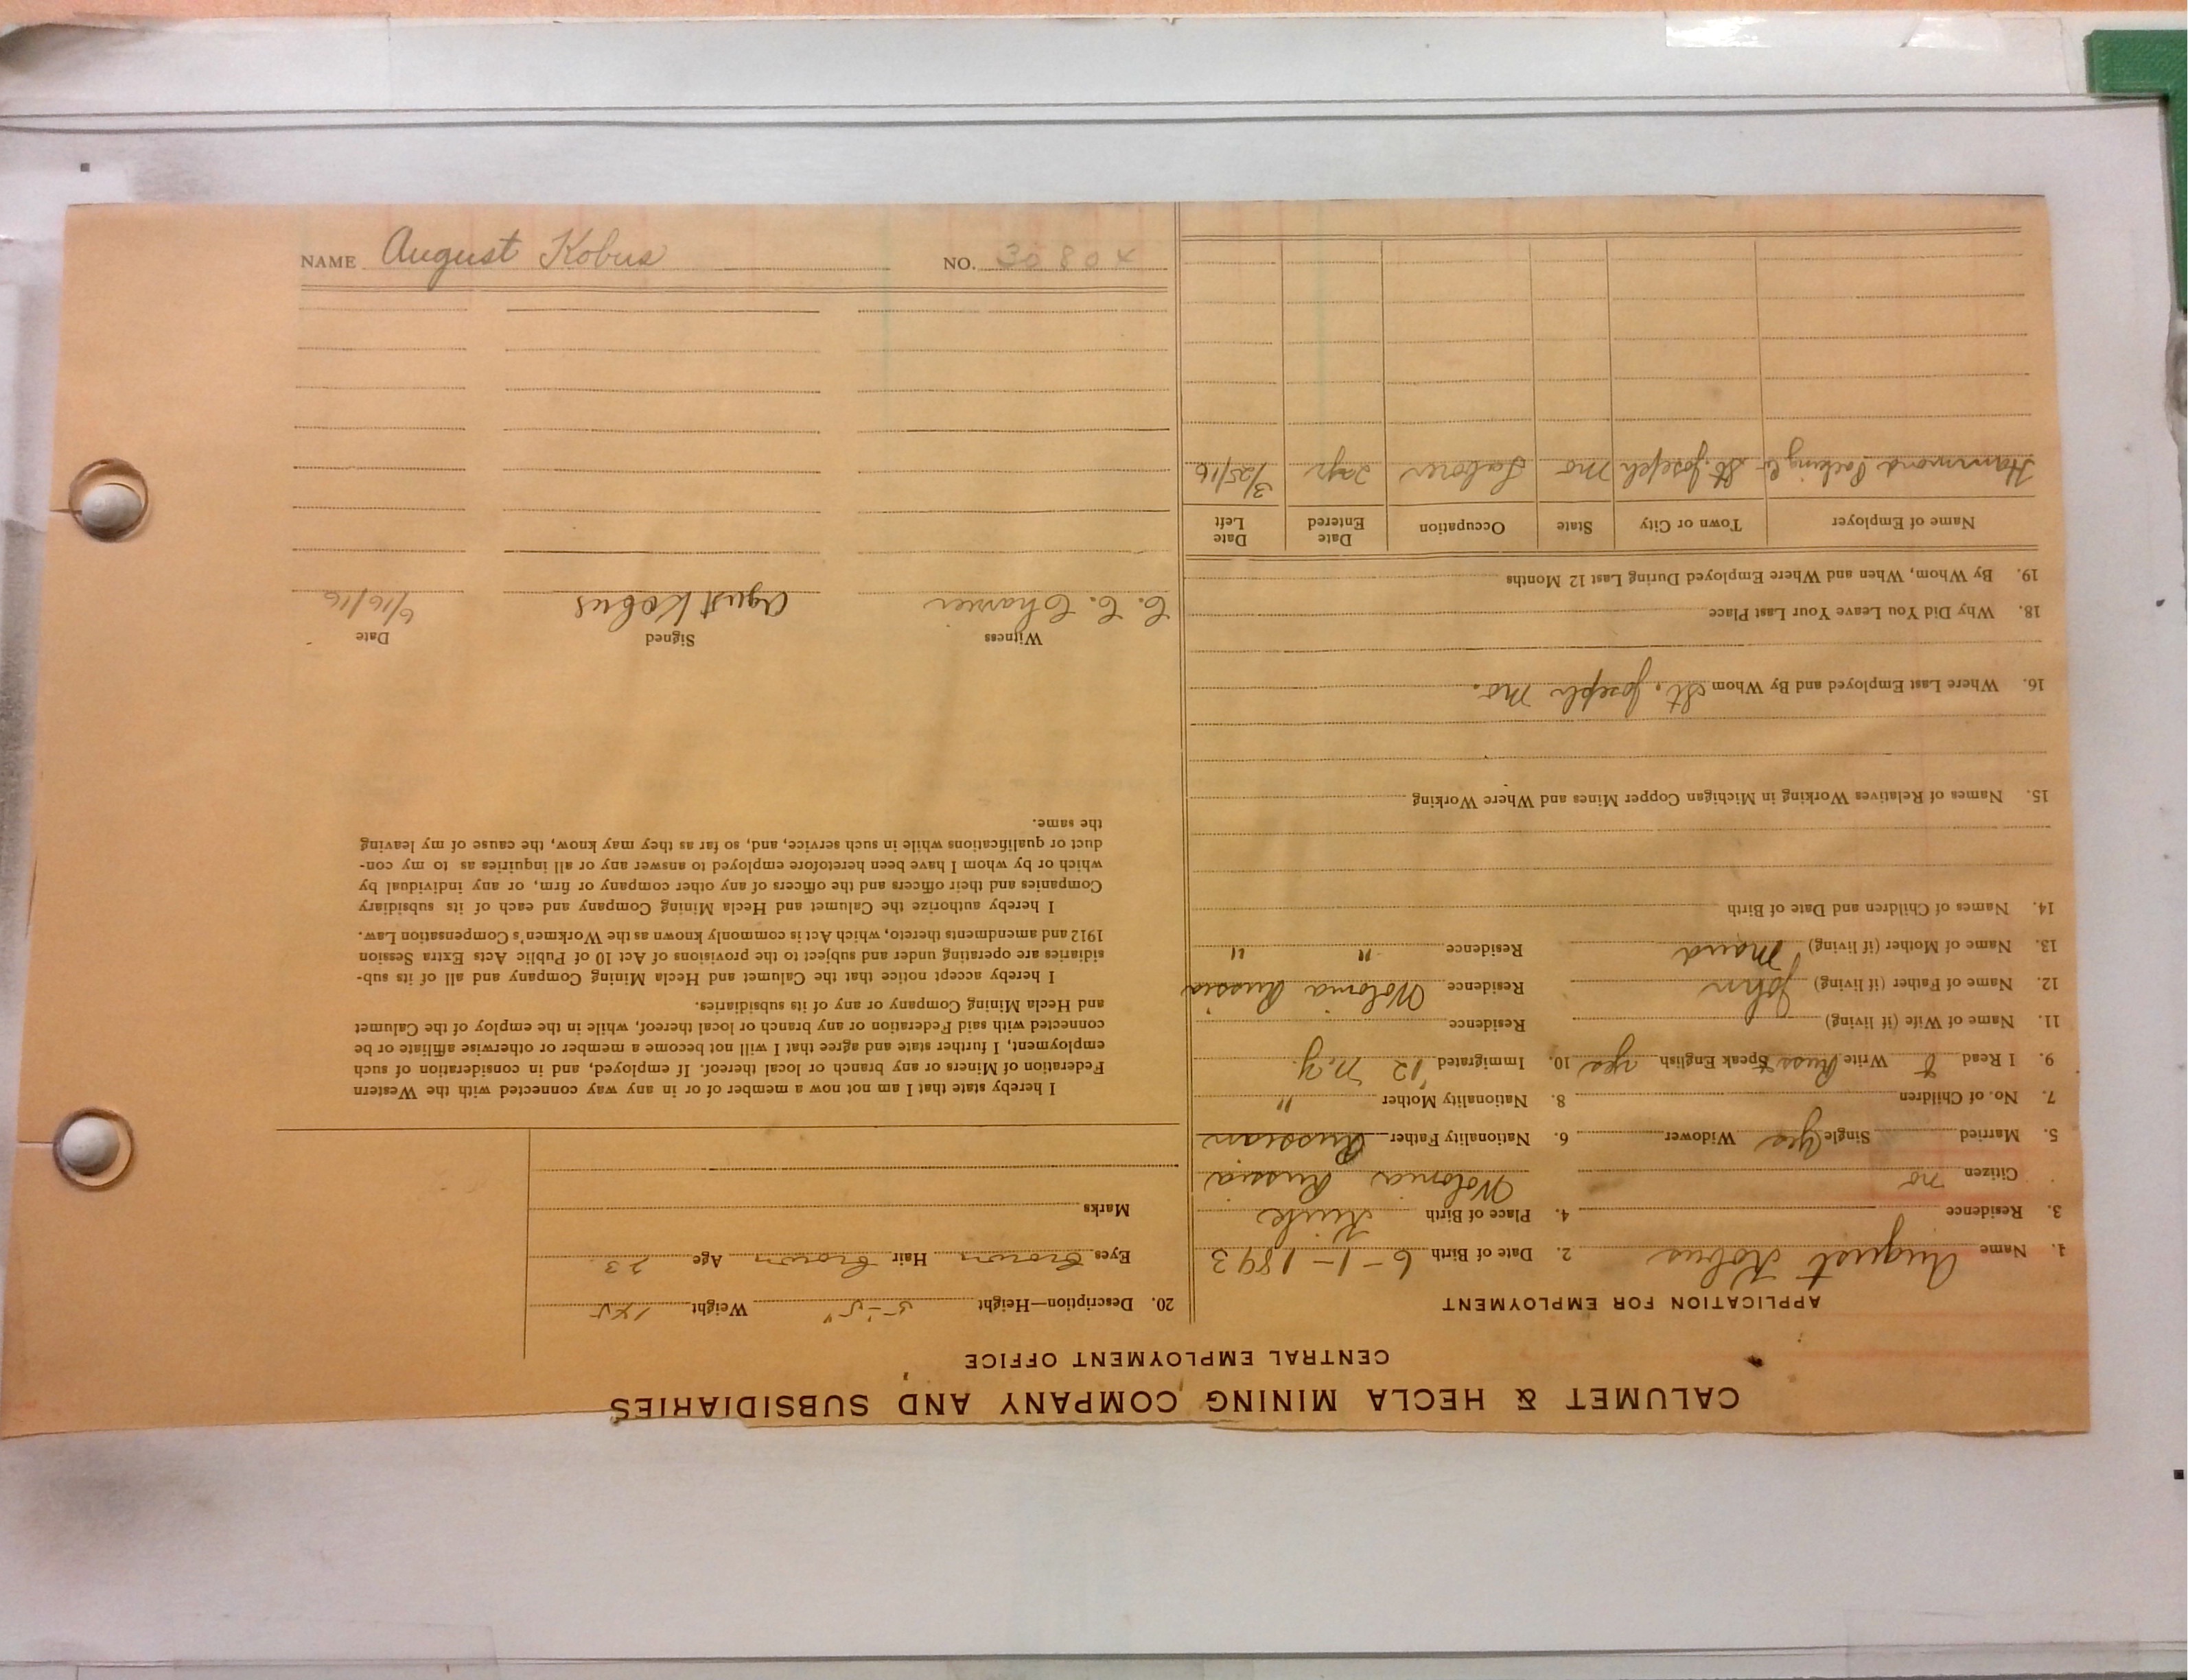 CALUMET & HECLA MINING COMPANY AND SUBSIDIARIES
CENTRAL EMPLOYMENT OFFICE
APPLICATION FOR EMPLOYMENT
1. Name August Kobus 2. Date of Birth 6-1-1893
3. Residence 4. Place of Birth
Citizen no Wolonia Russia
5. Married Single yes Widower 6. Nationality Father Russian
7. No. of Children 8. Nationality Mother "
9. I Read & Write Russ & Speak English yes 10. Immigrated '12 N.Y.
11. Name of Wife (if living) Residence
12. Name of Father (if living) John Residence Wolonia Russia
13. Name of Mother (if living) Residence " "
14. Names of Children and Date of Birth
15. Names of Relatives Working in Michigan Copper Mines and Where Working
16. Where Last Employed and By Whom St. Joseph Mo.
18. Why Did You Leave Your Last Place
19. By Whom, When and Where Employed During Last 12 Months
Name of Employer Town or City State Occupation Date Entered Date Left
Hammond Packing Co St. Joseph Mo Mo Laborer 2 yr 3/25/16
20. Description—Height 5'-5" Weight
Eyes Brown Hair Brown Age 23
Marks
I hereby state that I am not now a member of or in any way connected with the Western
Federation of Miners or any branch or local thereof. If employed, and in consideration of such
employment, I further state and agree that I will not become a member or otherwise affiliate or be
connected with said Federation or any branch or local thereof, while in the employ of the Calumet
and Hecla Mining Company or any of its subsidiaries.
I hereby accept notice that the Calumet and Hecla Mining Company and all of its sub-
sidiaries are operating under and subject to the provisions of Act 10 of Public Acts Extra Session
1912 and amendments thereto, which Act is commonly known as the Workmen's Compensation Law.
I hereby authorize the Calumet and Hecla Mining Company and each of its subsidiary
Companies and their officers and the officers of any other company or firm, or any individual by
which or by whom I have been heretofore employed to answer any or all inquiries as to my con-
duct or qualifications while in such service, and, so far as they may know, the cause of my leaving
the same.
Witness Signed Date
C. C. Agust Kobus 6/16/16
NAME August Kobus NO. 30804